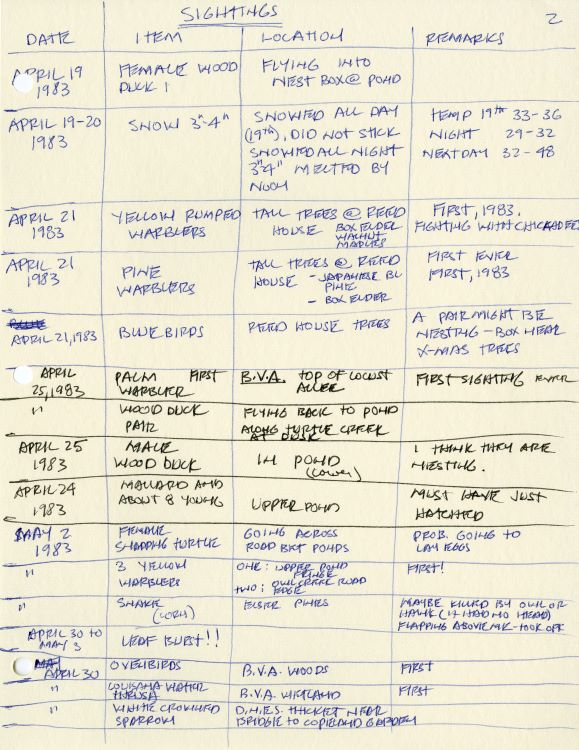 SIGHTINGS 2
DATE ITEM LOCATION REMARKS
APRIL 19 FEMALE WOOD FLYING INTO
1983 DUCK 1 NEST BOX @ POND
APRIL 19-20 SNOW 3"-4" SNOWED ALL DAY TEMP 19TH 33-36
1983 (19TH), DID NOT STICK NIGHT 29-32
SNOWED ALL NIGHT NEXT DAY 32-48
3"-4" MELTED BY
NOON
APRIL 21 YELLOW RUMPED TALL TREES @ REED FIRST, 1983.
1983 WARBLERS HOUSE BOX ELDER FIGHTING WITH CHICKADEES
WALNUT
MAPLES
APRIL 21 PINE TALL TREES @ REED FIRST EVER
1983 WARBLERS HOUSE - JAPANESE BL FIRST, 1983
PINE
- BOX ELDER
APRIL 21, 1983 BLUEBIRDS REED HOUSE TREES A PAIR MIGHT BE
NESTING - BOX NEAR
X-MAS TREES
APRIL PALM FIRST B.V.A. TOP OF LOCUST FIRST SIGHTING EVER
25, 1983 WARBLER ALLEE
" WOOD DUCK FLYING BACK TO POND
PAIR ALONG TURTLE CREEK
AT DUSK
APRIL 25 MALE IN POND I THINK THEY ARE
1983 WOOD DUCK (LOWER) NESTING.
APRIL 24 MALLARD AND UPPER POND MUST HAVE JUST
1983 ABOUT 8 YOUNG HATCHED
MAY 2 FEMALE GOING ACROSS PROB. GOING TO
1983 SNAPPING TURTLE ROAD BET PONDS LAY EGGS
" 3 YELLOW ONE: UPPER POND FIRST!
WARBLERS FRINGE
TWO: OWL CREEK ROAD
EDGE
" SNAKE PINES MAYBE KILLED BY OWL OR
(CORN) HAWK (IT HAD NO HEAD)
FLAPPING ABOVE ME - TOOK OFF
APRIL 30 TO LEAF BURST!!
MAY 3
APRIL 30 OVENBIRDS B.V.A. WOODS FIRST
" LOUISIANA WATER B.V.A. WETLAND FIRST
" WHITE CROWNED D.N.E.S. THICKET NEAR
SPARROW BRIDGE TO COPELAND GARDEN